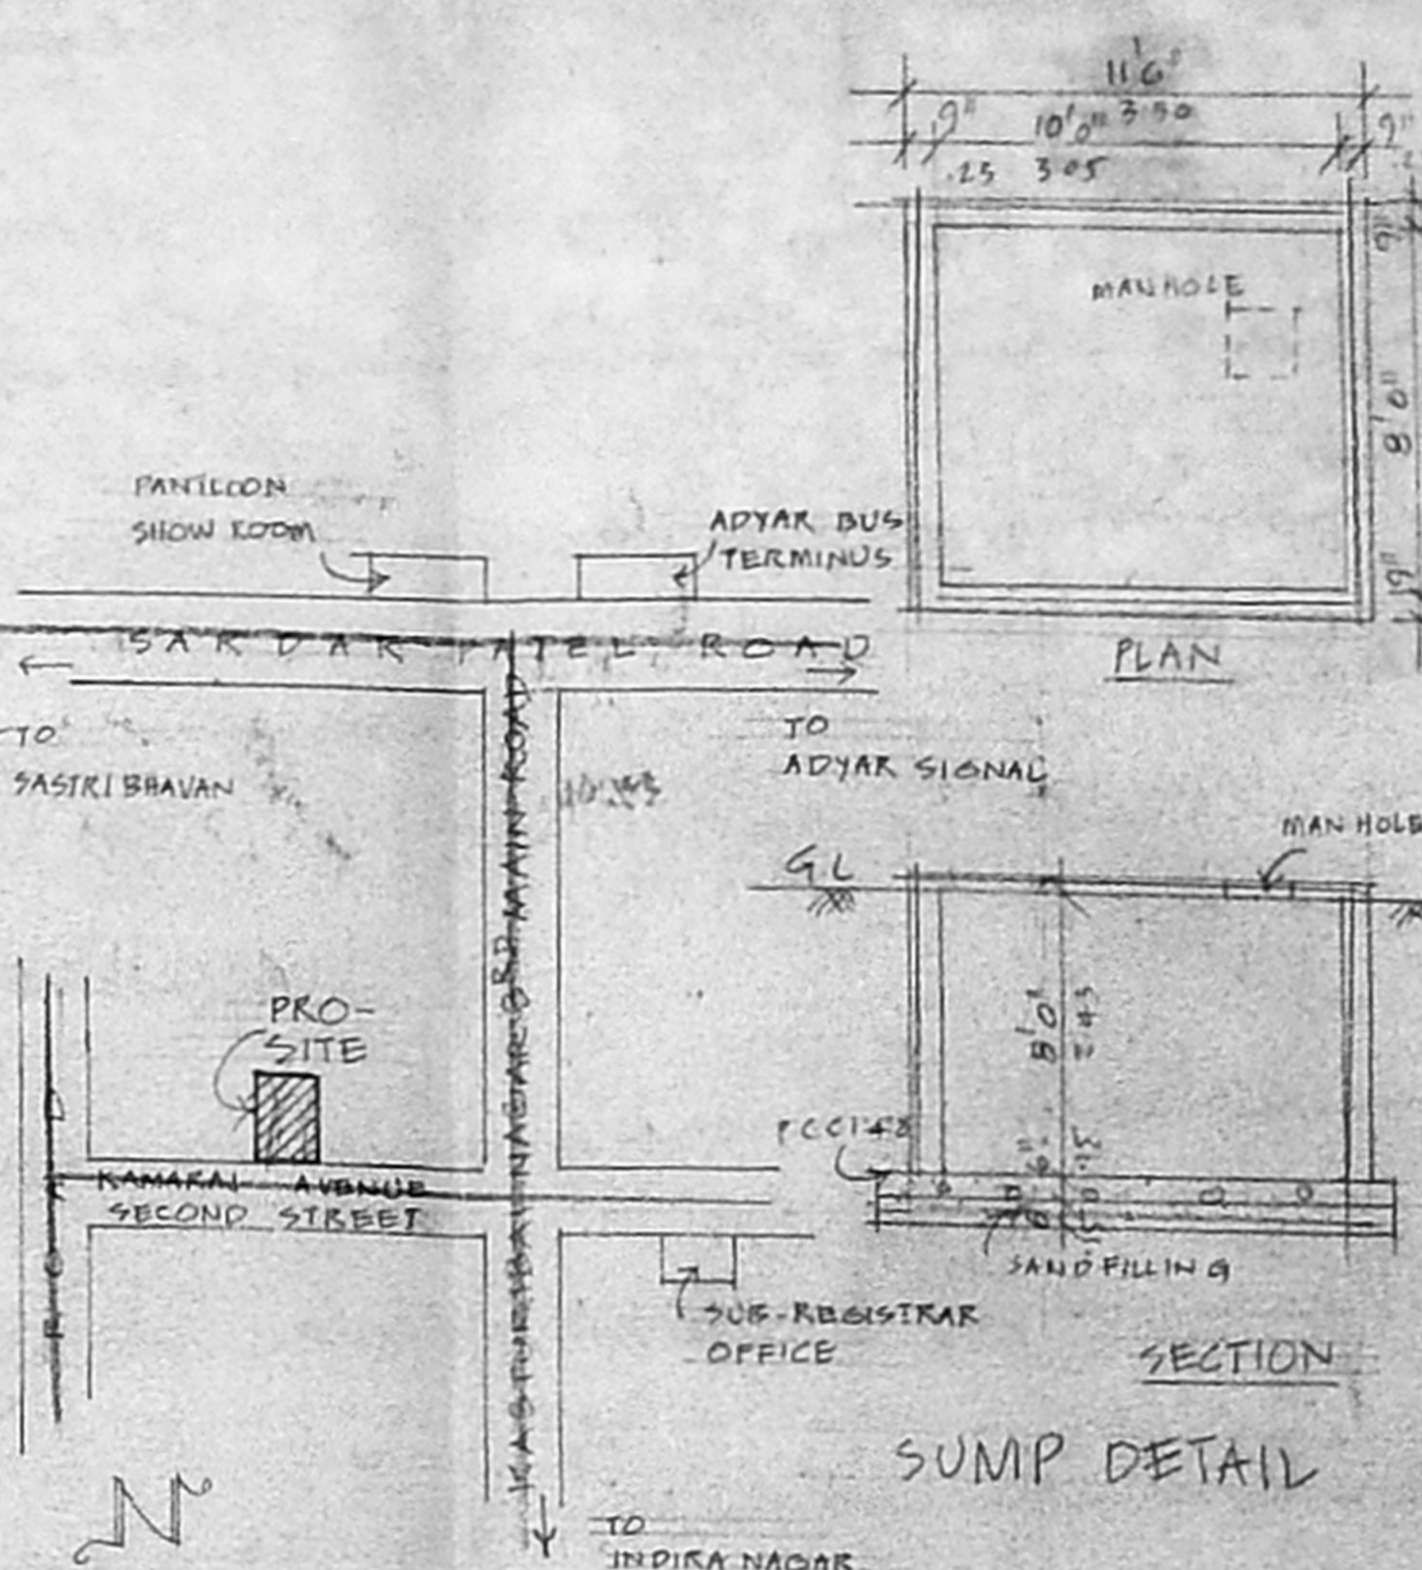 11'6"
3.50
9"
10'0"
9"
.25
3.05
9"
MANHOLE
8'0"
9"
PLAN
PANTLOON
SHOW ROOM
ADYAR BUS
TERMINUS
SARDAR PATEL ROAD
TO
SASTRI BHAVAN
TO
ADYAR SIGNAL
MAN HOLE
GL
KASTHURIBAI NAGAR 3RD MAIN ROAD
PRO-
SITE
8'0"
2.43
PCC 1:4:8
6"
.15
ROAD
KAMARAJ AVENUE
SECOND STREET
SAND FILLING
SUB-REGISTRAR
OFFICE
SECTION
SUMP DETAIL
N
TO
INDIRA NAGAR